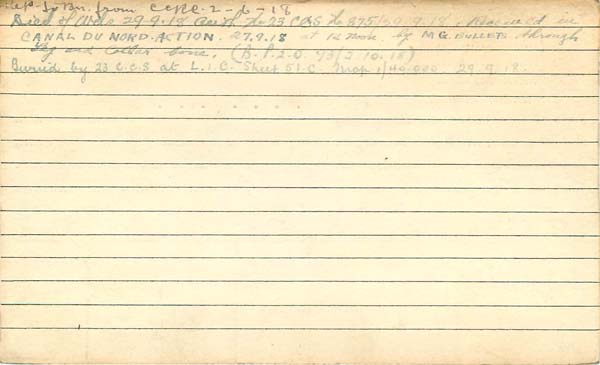 Rep. to Bn. from CCRC. 2-6-18
Died of Wds 29.9.18 Auth. No 23 CCS No 875/29.9.18. Received in
CANAL DU NORD. ACTION. 27.9.18 at 12 noon by M.G. BULLETS through
Leg and Collar bone. (B.P.2.O. 43/2.10.18)
Buried by 23 C.C.S at L.1.C. Sheet 51C. Map 1/40.000. 29.9.18.